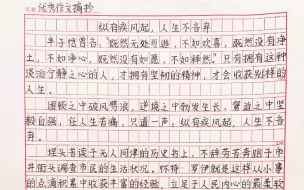 优秀作文摘抄
纵有疾风起，人生不言弃
丰子恺曾言：“既然无处可逃，不如欢喜，既然没有净
土，不如静心，既然没有如愿，不如释然。”只有拥有这种
淡泊宁静之心的人，才拥有坚韧的精神，才会收获别样的
人生。
困顿之中破风劈浪，逆境之中勃发生长，窘迫之中坚
毅自强，在人生苦痛，只道一声，纵有疾风起，人生不言
弃。
埋头苦读于无人问津的历史书上，不辞劳苦奔跑于市
井街头调查市民的生活状况，怀特·罗伊就是这样从小小
的点滴积累中收获丰富的经验，立足于人民内心的最柔软